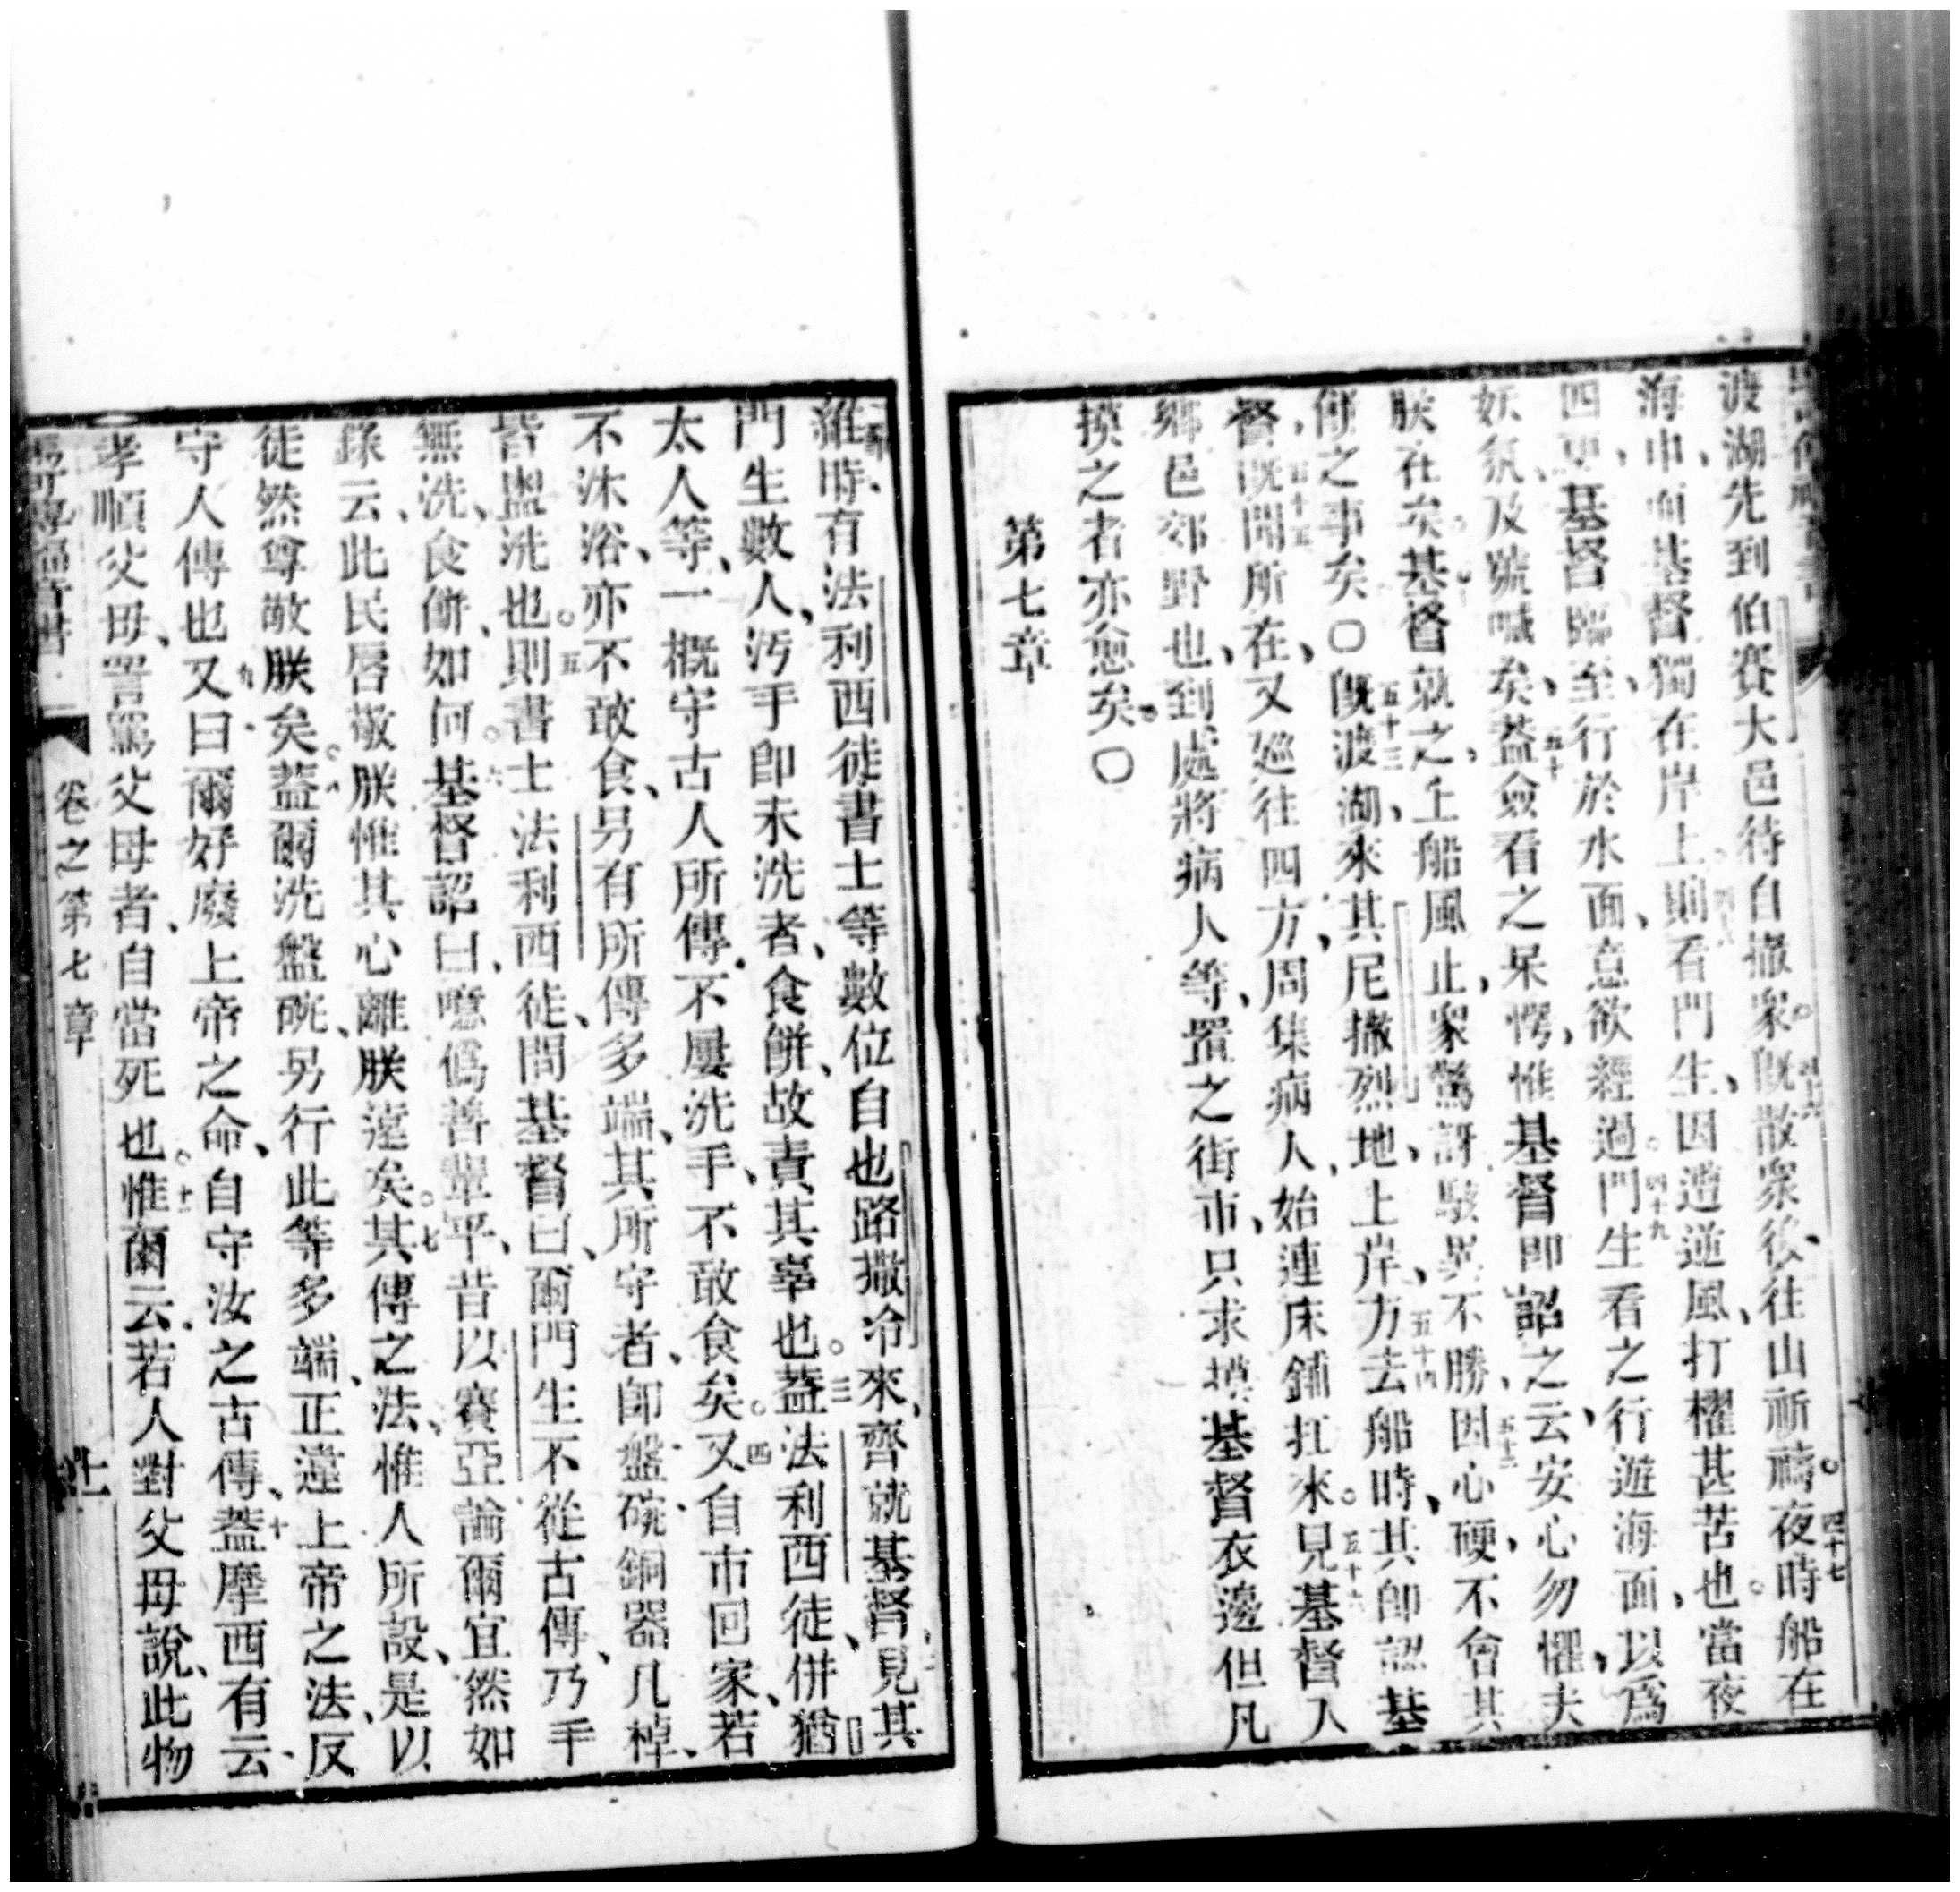 渡湖先到伯賽大邑待自撤衆。四十六既散衆後、往山祈禱。四十七夜時船在
海中、而基督獨在岸上。四十八則看門生、因遭逆風、打櫂甚苦也。當夜
四更、基督臨至、行於水面、意欲經過。四十九門生看之行遊海面、以爲
妖氛、及號喊矣、五十蓋僉看之呆愕、惟基督即詔之云、安心勿懼、夫
朕在矣。基督就之、上船風止、衆驚訝駭異不勝、五十二因心硬、不會其
餅之事矣○五十三既渡湖、來其尼撒烈地、上岸、五十四方去船時、其即認基
督、五十五既聞所在、又巡往四方、周集病人、始連床鋪扛來。五十六見基督入
鄉邑郊野也、到處將病人等、置之街市、只求摸基督衣邊、但凡
摸之者亦愈矣。○
第七章
維時、有法利西徒書士等數位、自也路撒冷來、齊就基督、二見其
門生數人、汚手即未洗者、食餅、故責其辜也。三蓋法利西徒、併猶
太人等、一概守古人所傳、不屢洗手、不敢食矣。四又自市回家、若
不沐浴、亦不敢食、另有所傳多端、其所守者、即盤碗銅器几棹、
皆盥洗也。五則書士法利西徒、問基督曰、爾門生不從古傳、乃手
無洗、食餅、如何。六基督詔曰、噫僞善輩乎、昔以賽亞論爾宜然、如
錄云、此民唇敬朕、惟其心離朕遠矣。七其傳之法、惟人所設、是以
徒然尊敬朕矣。八蓋爾洗盤碗、另行此等多端、正違上帝之法、反
守人傳也。九又曰、爾好廢上帝之命、自守汝之古傳、十蓋摩西有云、
孝順父母、詈罵父母者、自當死也。十一惟爾云、若人對父母說、此物
馬可傳福音書
卷之第七章